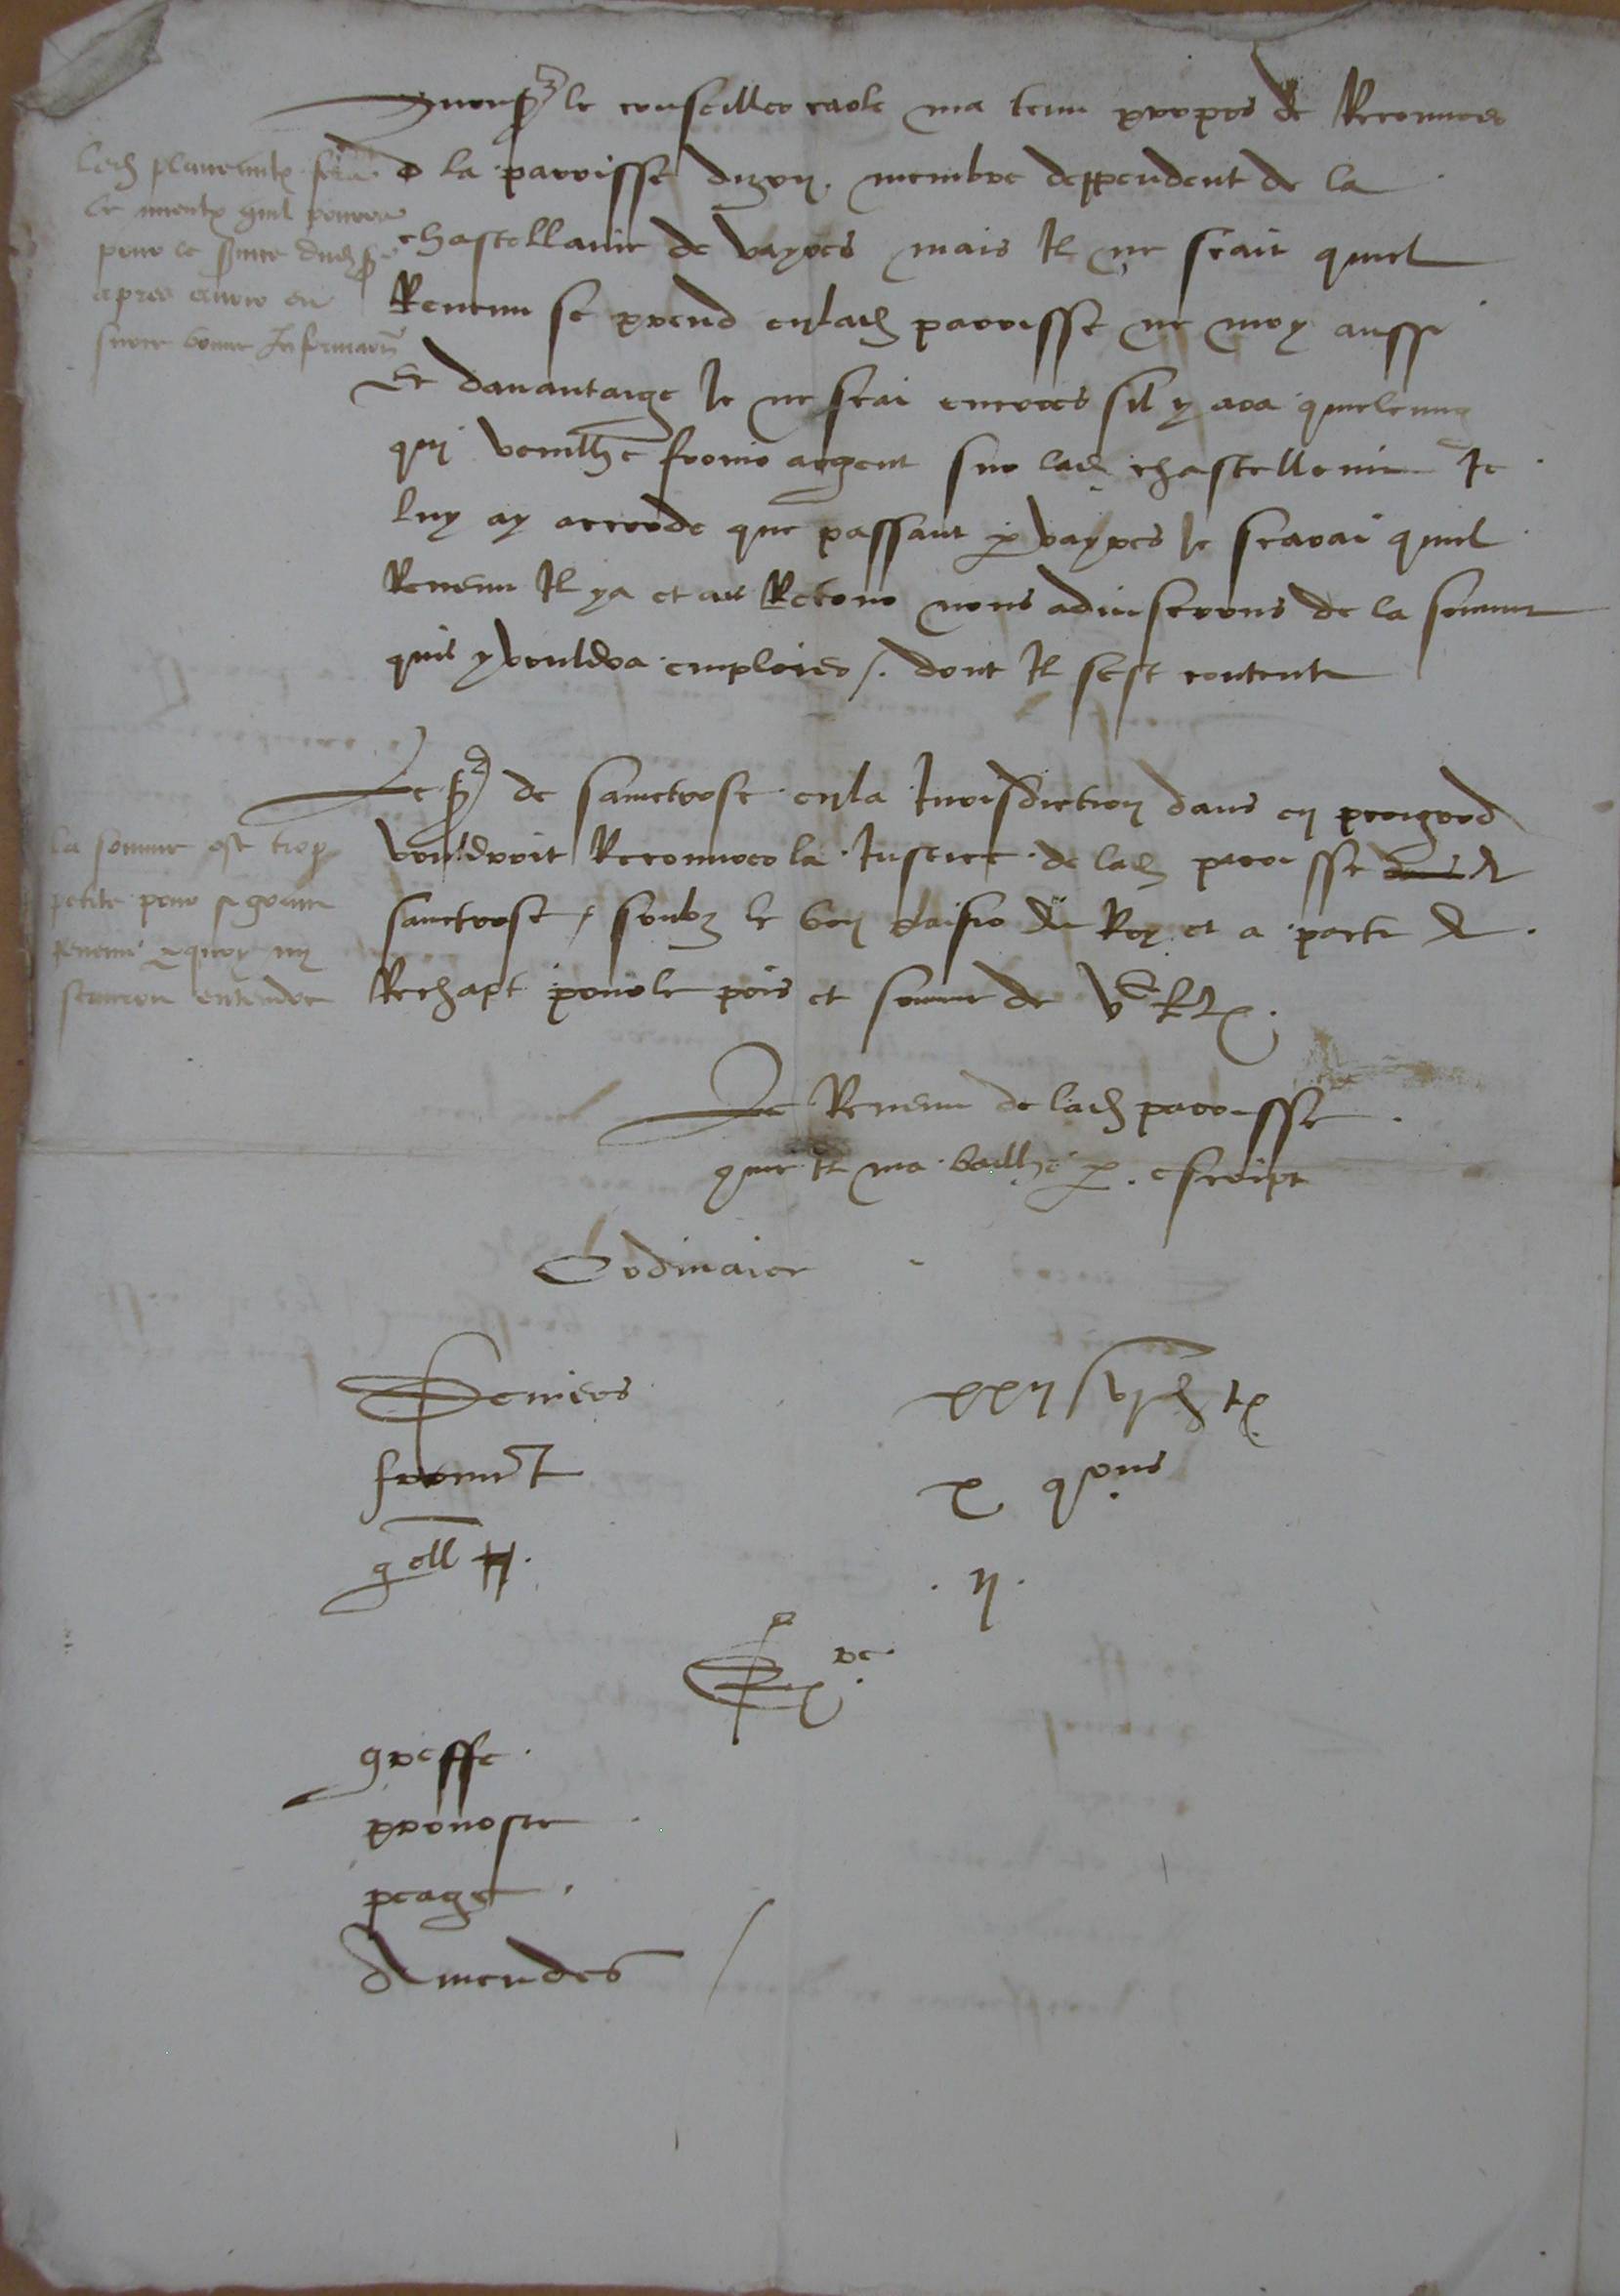 Monsr le conseiller carle ma tenu propos de Recouvrer
la parroisse dizon. membre deppendent de la
chastellanie de vayres mais Il ne scait quel
Revenu se prend en lad parroisse ne moy aussi
Et davantaige Je ne scai encores sil y ara quelcung
qui veuilhe fornir argent sur lad chastellenie Je
luy ay accorde que passant p vayres Je scarai quel
Revenu Il ya et au Retour nous adviserons de la somme
quil y vouldra emploier /. dont Il sest contente
Led placeantz fera
le mieulx quil pourra
pour le service dud sr
apres avoir eu
sur ce bonne Informaon
Le sr de sainctrose en la Jurisdiction dans en perigord
vouldroit Recouvrer la Justice de lad parroisse de
sainctrose / soubz le bon plaisir du Roy et a pacte de
Rechapt pour le pris et somme de vc lt.
la somme est trop
petite pour si grand
revenu a quoy ny
scauroit entendre
Le Revenu de lad parroisse
que Il ma bailhe p. escript
Ordinaire
Deniers xxii s vi d tz
fromet x qons
gell .ii.
greffe.
prevoste
peage.
Amendes /